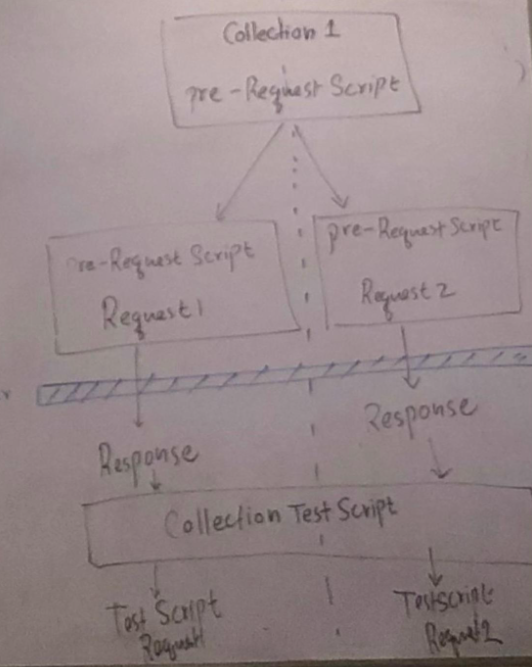 Collection 1
pre-Request Script
pre-Request Script
Request 1
pre-Request Script
Request 2
Response
Response
Collection Test Script
Test Script
Request1
Testscript
Request2